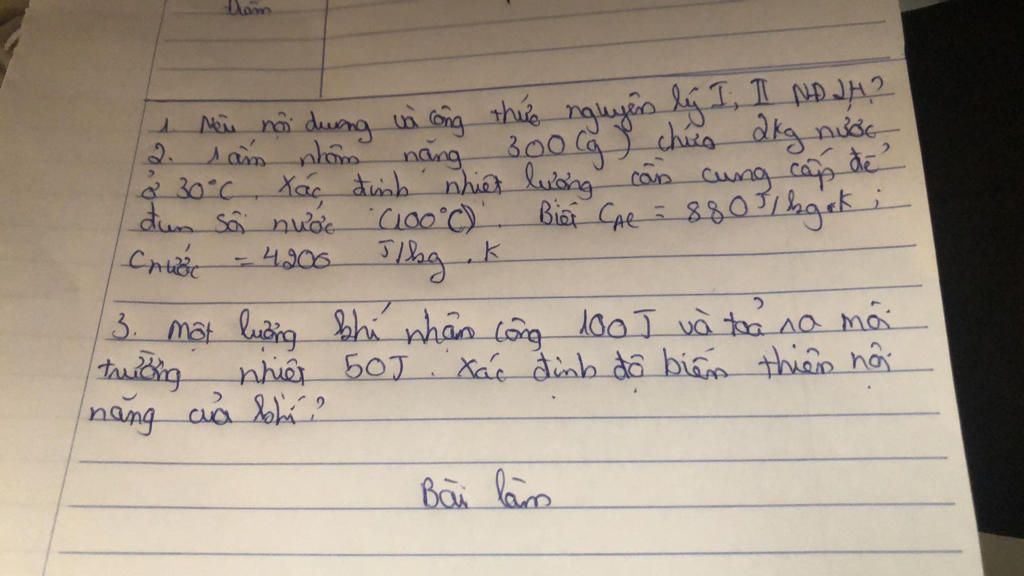 thầm
1. Nêu nội dung và công thức nguyên lý I, II NĐLH?
2. 1 ấm nhôm nặng 300(g) chứa 2kg nước
ở 30°C. Xác định nhiệt lượng cần cung cấp để
đun sôi nước (100°C). Biết CAl = 880J/kg.K;
Cnước = 4200 J/kg.K
3. Một lượng khí nhận công 100J và toả ra môi
trường nhiệt 50J. Xác định độ biến thiên nội
năng của khí?
Bài làm